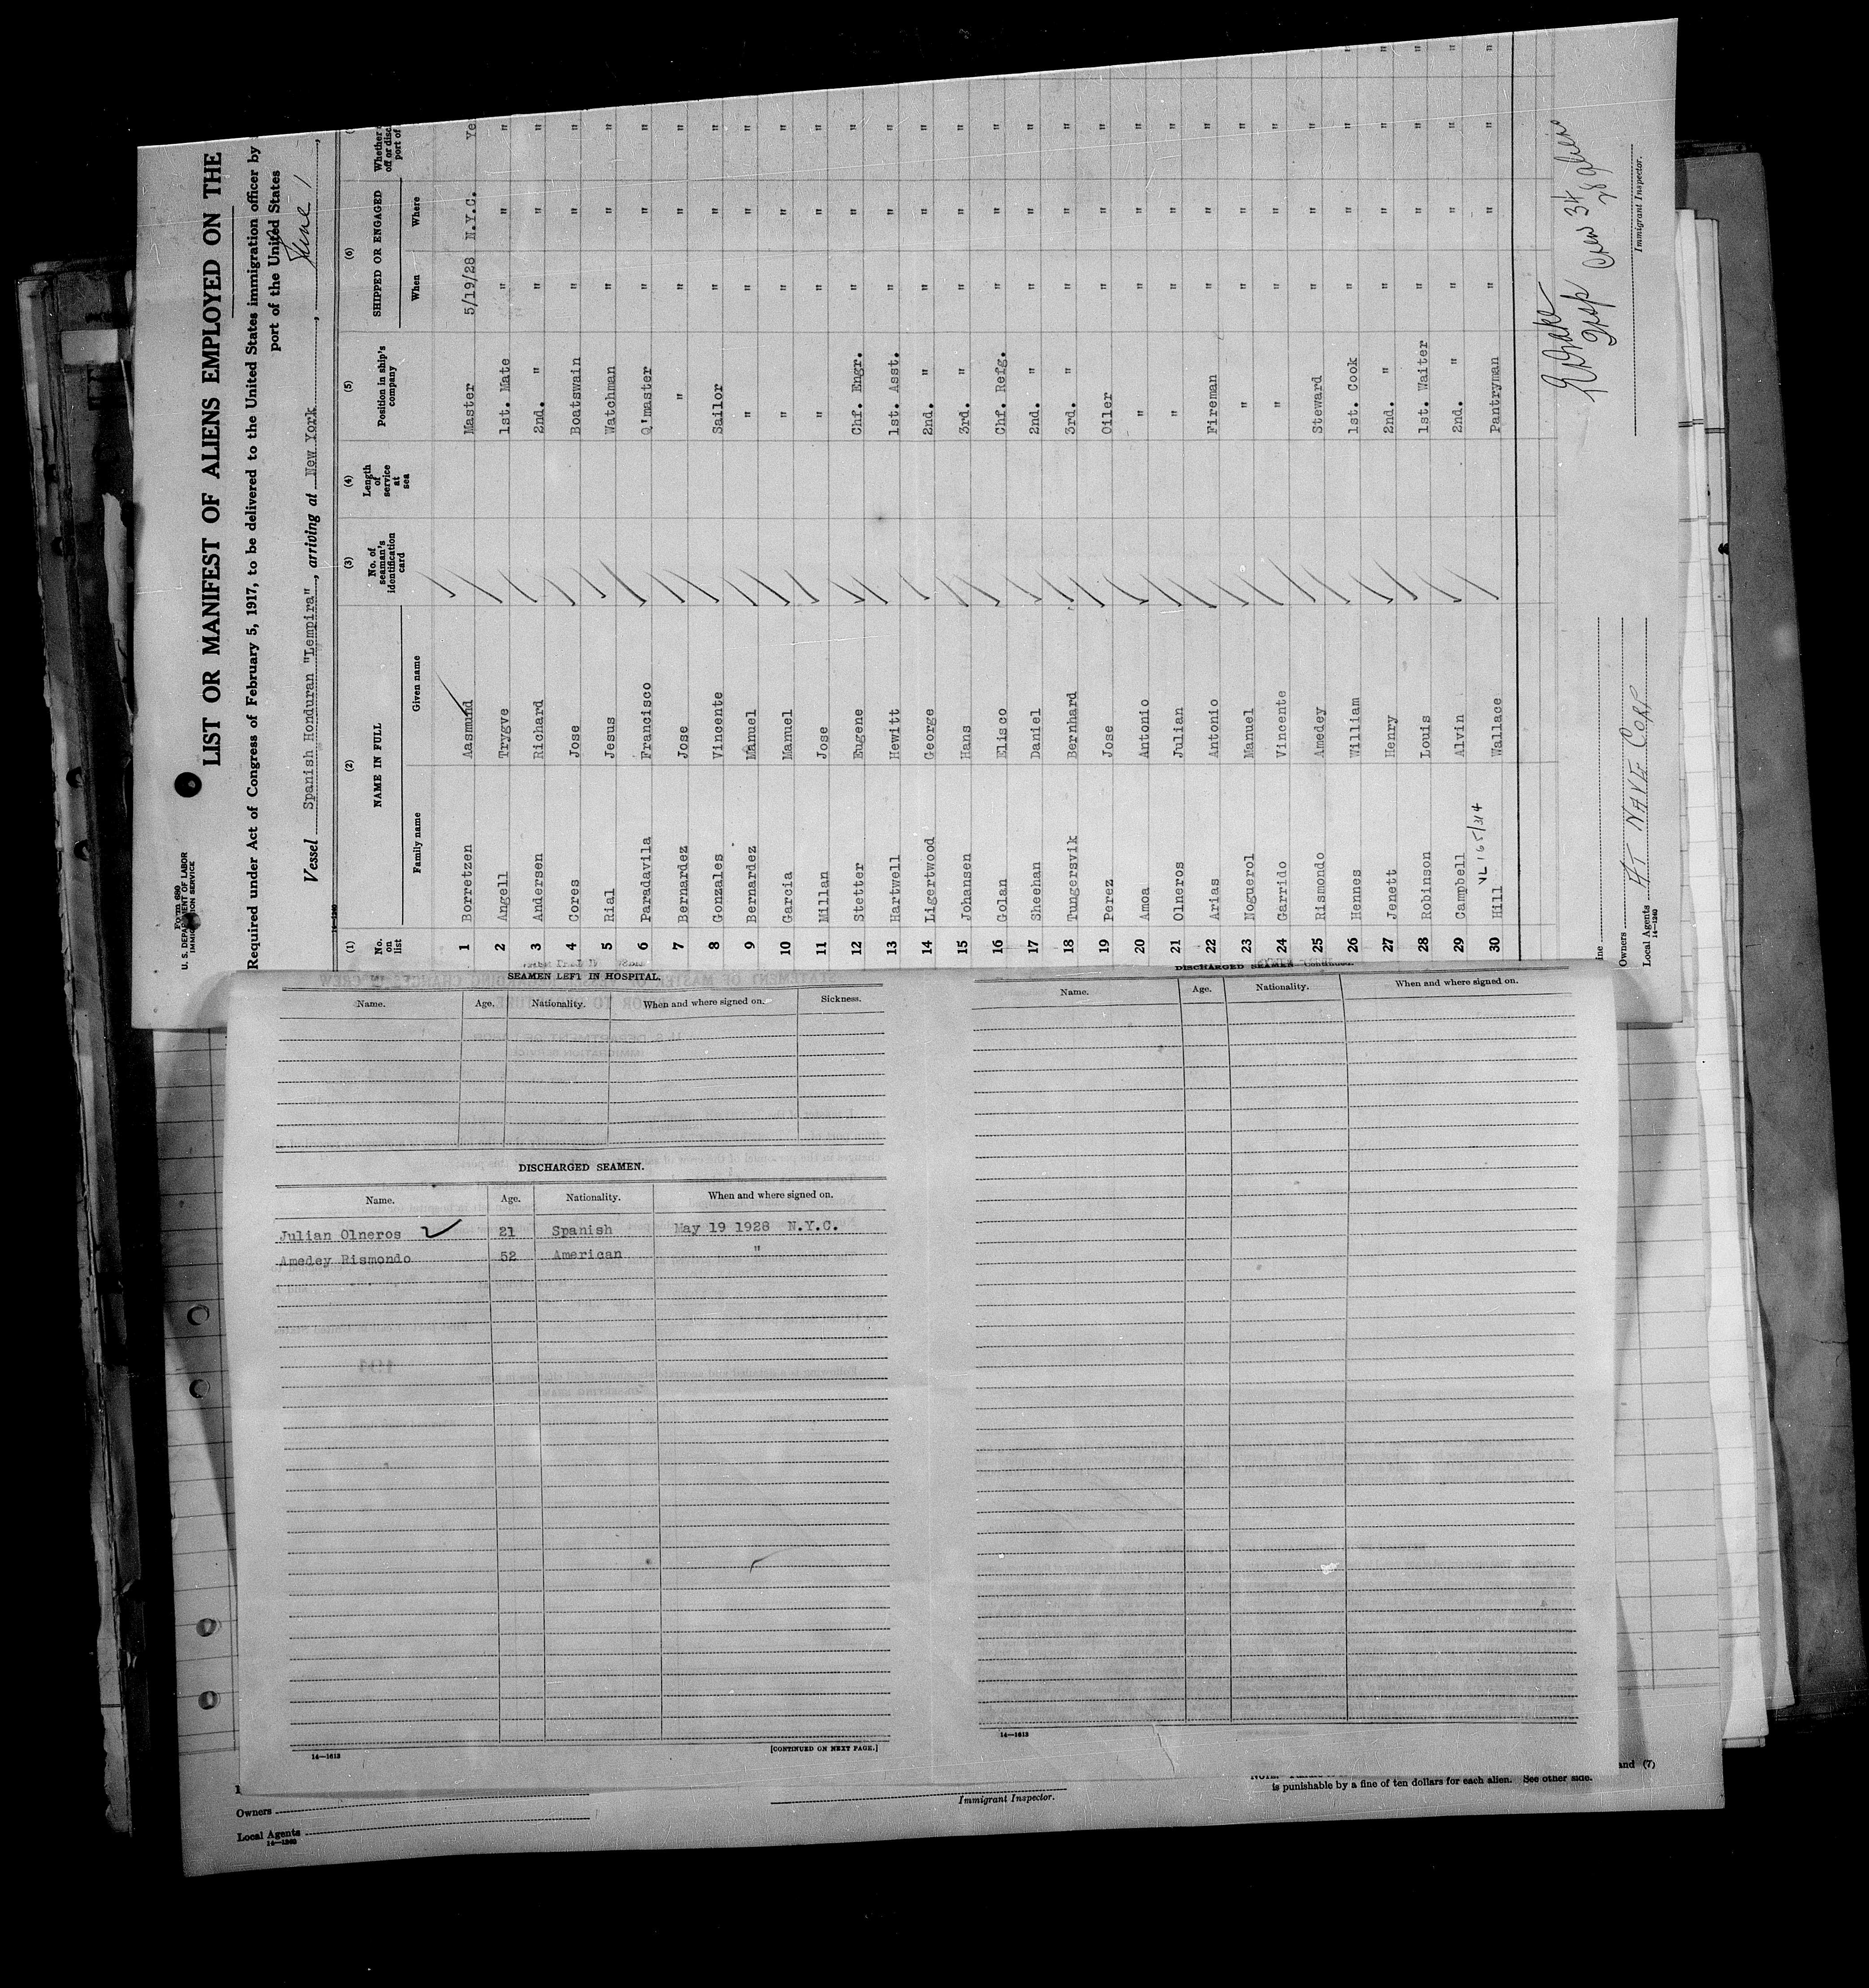 Form 680
U. S. DEPARTMENT OF LABOR
IMMIGRATION SERVICE
LIST OR MANIFEST OF ALIENS EMPLOYED ON THE
Required under Act of Congress of February 5, 1917, to be delivered to the United States immigration officer by
port of the United States
Vessel Spanish Honduran "Lempira", arriving at New York, June 1,
14—1240
(1) (2) (3) (4) (5) (6)
No. on list NAME IN FULL No. of seaman's identification card Length of service at sea Position in ship's company SHIPPED OR ENGAGED Whether
off or disc
port of
Family name Given name When Where
1 Borretzen Aasmund Master 5/19/28 N.Y.C. Ye
2 Angell Trygve 1st. Mate " " "
3 Andersen Richard 2nd. " " " "
4 Cores Jose Boatswain " " "
5 Rial Jesus Watchman " " "
6 Paradavila Francisco Q'master " " "
7 Bernardez Jose " " " "
8 Gonzales Vincente Sailor " " "
9 Bernardez Manuel " " " "
10 Garcia Manuel " " " "
11 Millan Jose " " " "
12 Stetter Eugene Chf. Engr. " " "
13 Hartwell Hewitt 1st. Asst. " " "
14 Ligertwood George 2nd. " " " "
15 Johansen Hans 3rd. " " " "
16 Golan Elisco Chf. Refg. " " "
17 Sheehan Daniel 2nd. " " " "
18 Tungersvik Bernhard 3rd. " " " "
19 Perez Jose Oiler " " "
20 Amoa Antonio " " " "
21 Olneros Julian " " " "
22 Arias Antonio Fireman " " "
23 Noguerol Manuel " " " "
24 Garrido Vincente " " " "
25 Rismondo Amedey Steward " " "
26 Hennes William 1st. Cook " " "
27 Jenett Henry 2nd. " " " "
28 Robinson Louis 1st. Waiter " " "
29 Campbell Alvin 2nd. " " " "
VL 165/314
30 Hill Wallace Pantryman " " "
Insp Crew 34
28 aliens
Immigrant Inspector.
ine
Owners
Local Agents HT NAVE CORP
14—1240
SEAMEN LEFT IN HOSPITAL.
Name. Age. Nationality. When and where signed on. Sickness.
DISCHARGED SEAMEN.
Name. Age. Nationality. When and where signed on.
Julian Olneros 21 Spanish May 19 1928 N.Y.C.
Amedey Rismondo 52 American "
14—1613 [CONTINUED ON NEXT PAGE.]
DISCHARGED SEAMEN—Continued.
Name. Age. Nationality. When and where signed on.
14—1613
and (7)
is punishable by a fine of ten dollars for each alien. See other side.
Immigrant Inspector.
Owners
Local Agents